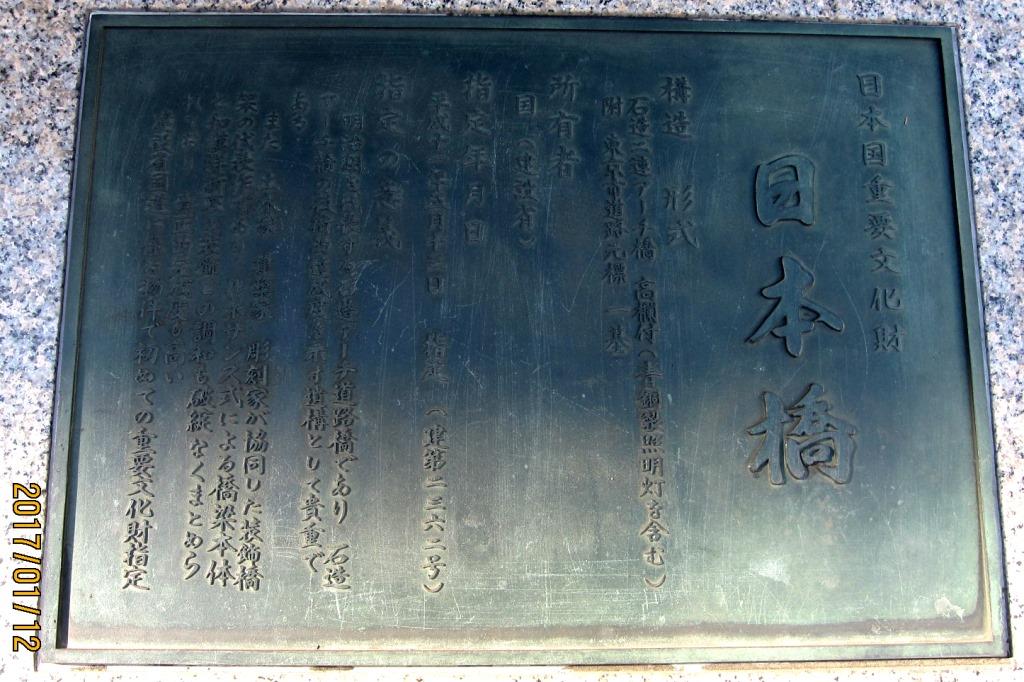 日本国重要文化財
日本橋
構造 形式
石造二連アーチ橋 高欄付(青銅製照明灯を含む)
附 東京市道路元標 一基
所有者
国(建設省)
指定年月日
平成十一年五月十三日 指定 (建第二三六二号)
指定の意義
明治期を代表する石造アーチ道路橋であり 石造
アーチ橋の技術的達成度を示す遺構として貴重で
ある
また 土木家 建築家 彫刻家が協同した装飾橋
架の代表作であり ルネサンス式による橋梁本体
と和漢洋折衷の装飾との調和も破綻なくまとめら
れており 意匠的完成度も高い
建設省国道の物件で初めての重要文化財指定
2017/01/12